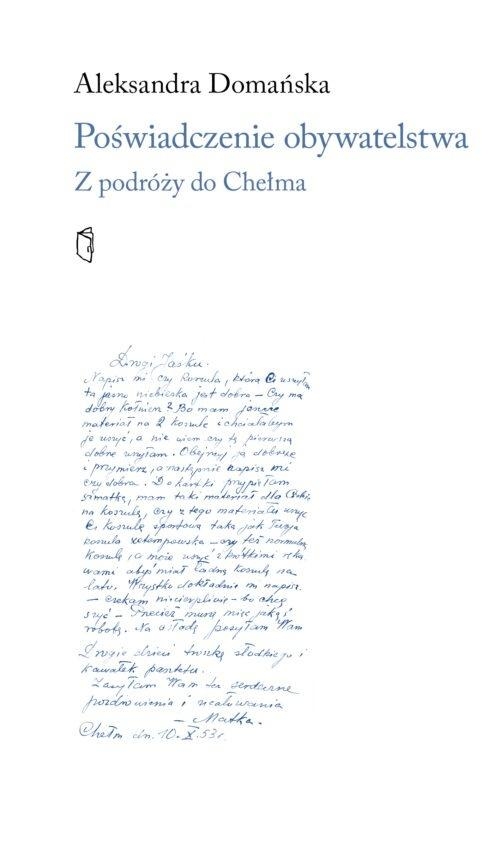 Aleksandra Domańska
Poświadczenie obywatelstwa
Z podróży do Chełma
Drogi Jaśku.
Napisz mi czy koszula, którą Ci uszyłam
ta jasno niebieska jest dobra – Czy ma
dobry kołnierz? Bo mam jeszcze
materiał na 2 koszule i chciałabym
je uszyć, a nie wiem czy tę pierwszą
dobrze uszyłam. Obejrzyj ją dobrze
i przymierz, a następnie napisz mi
czy dobra. Do kartki przypięłam
szmatkę, mam taki materiał dla Ciebie
na koszulę, czy z tego materiału uszyć
Ci koszulę sportową taką jak Twoja
koszula – czy też normalną
koszulę, a może uszyć z krótkimi ręka
wami abyś miał ładną koszulę na
lato. Wszystko dokładnie mi napisz.
– czekam niecierpliwie – bo chcę
szyć – Przecież muszę mieć jakąś
robotę. Na osłodę posyłam Wam
Drogie dzieci troszkę słodkiego i
kawałek pasztetu.
Zasyłam Wam tu serdeczne
pozdrowienia i ucałowania
– Matka.
Chełm dn. 10.X.53r.